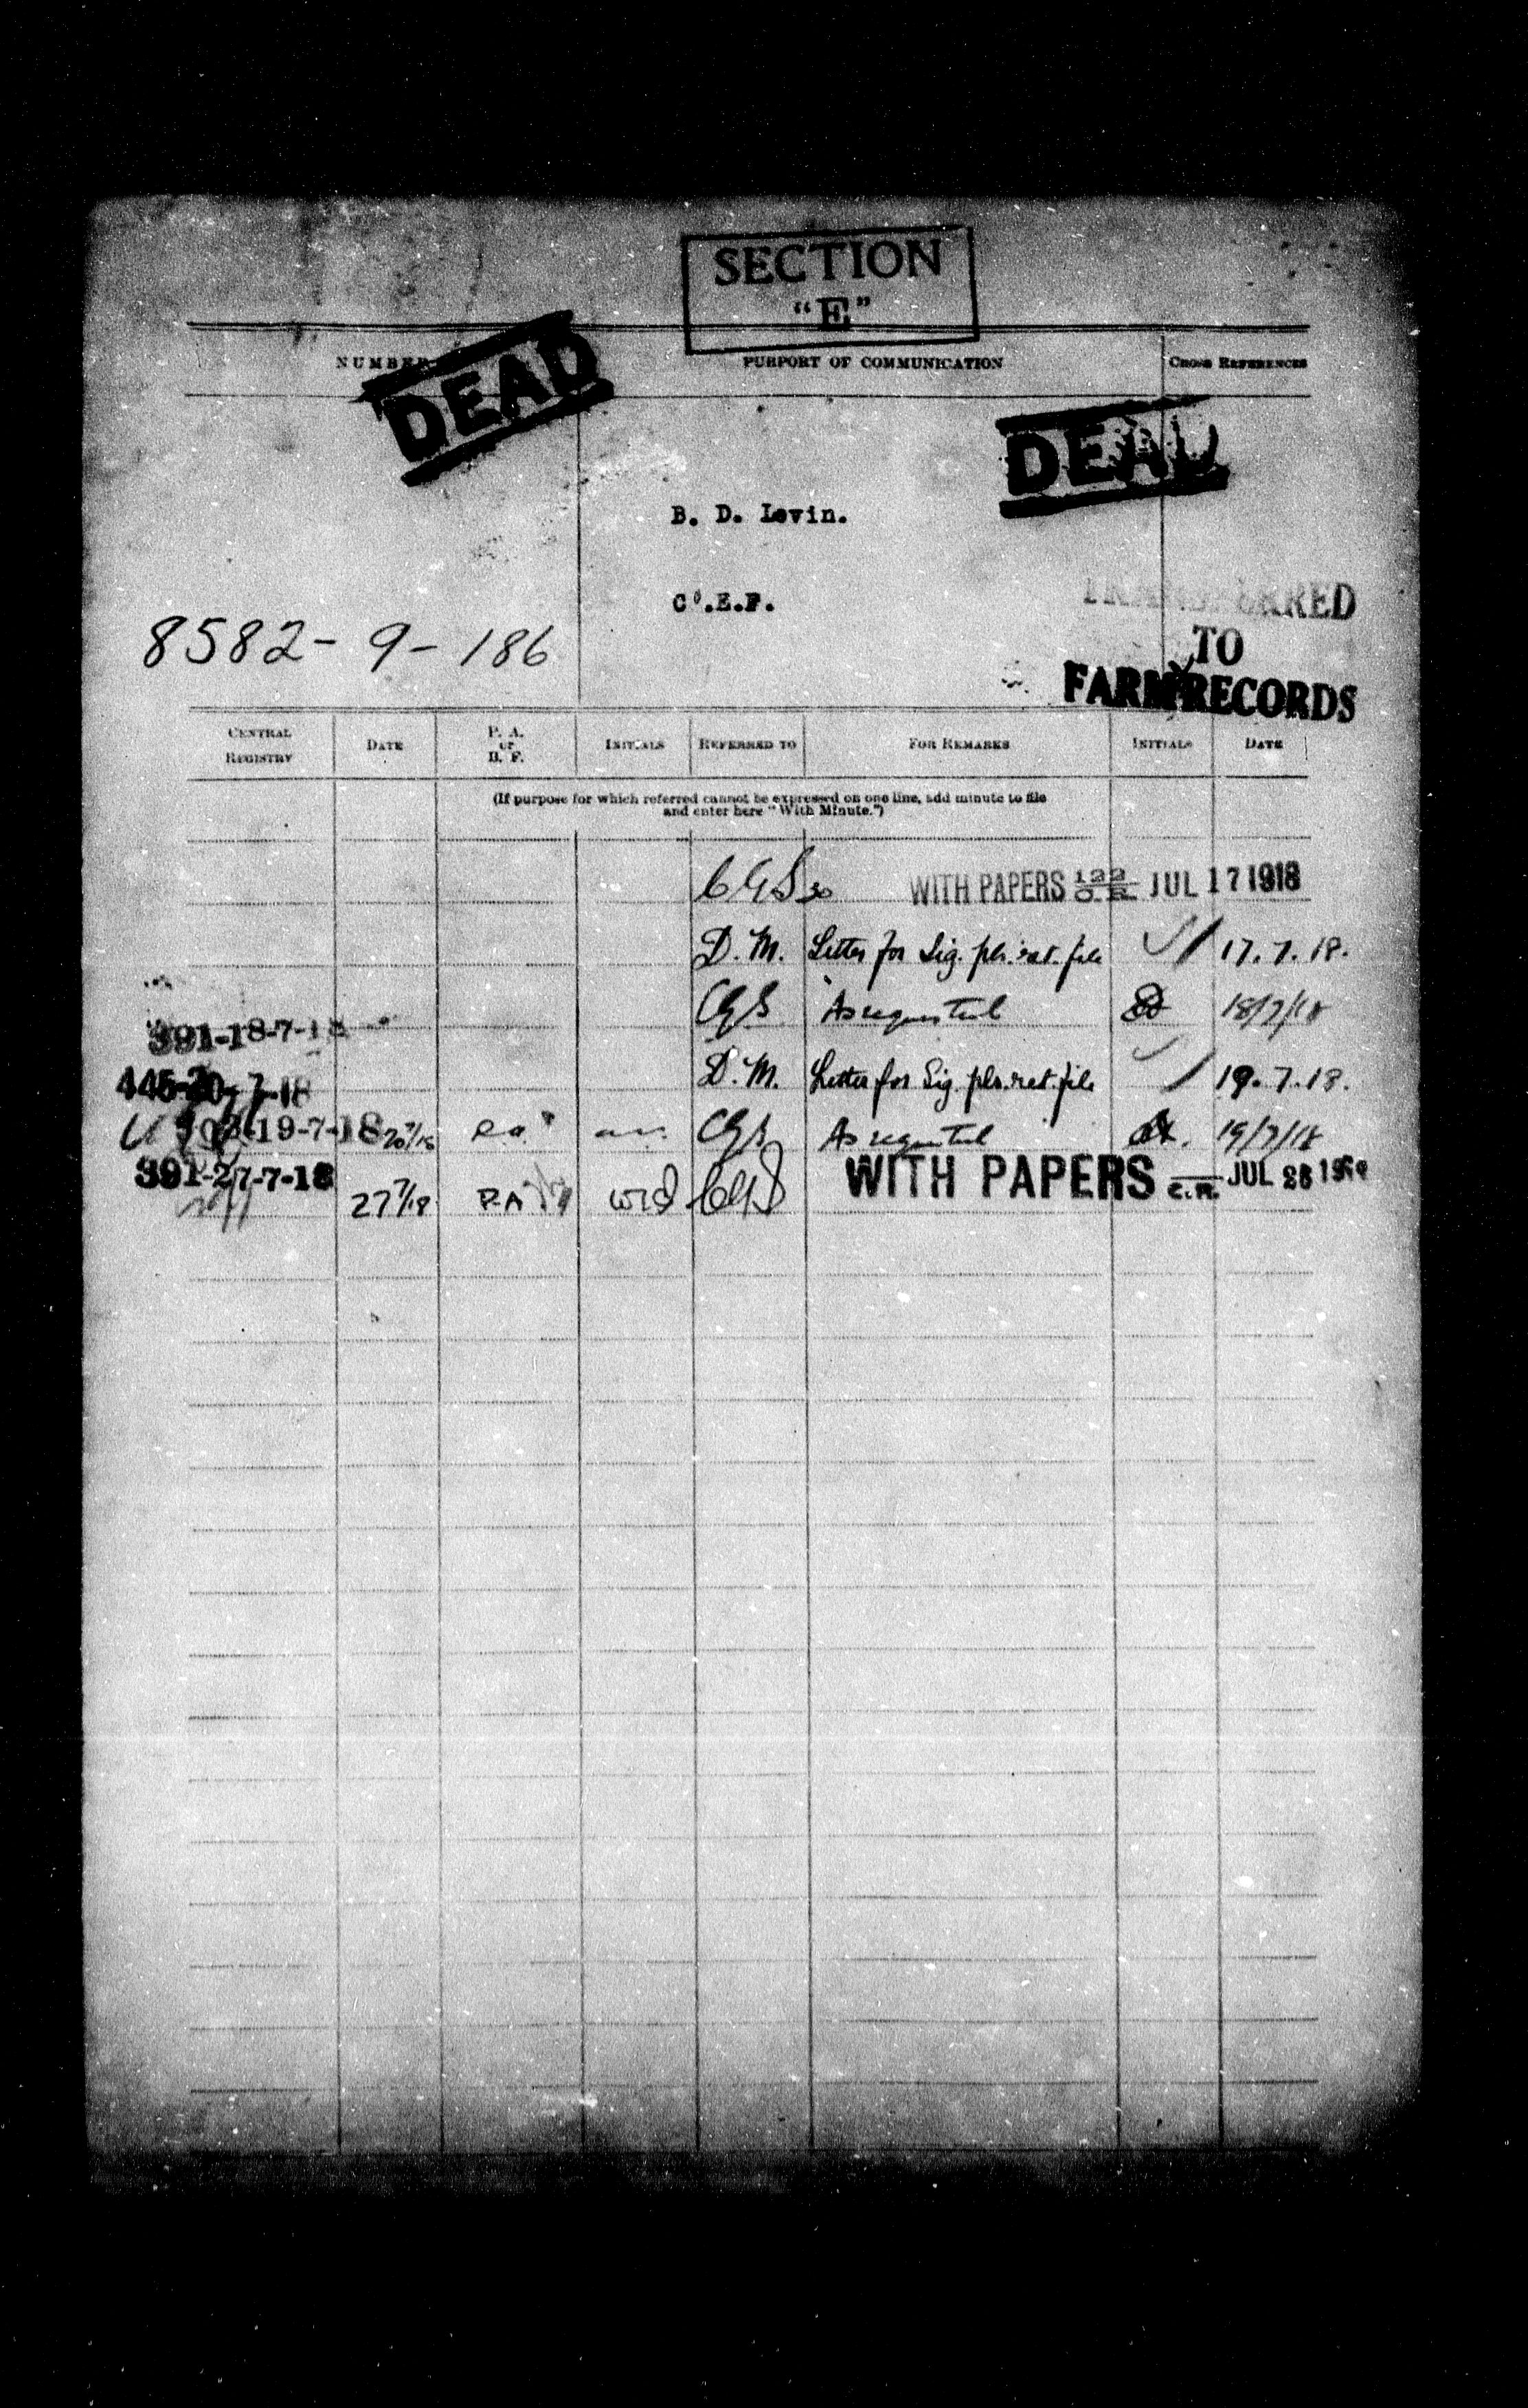 SECTION
"E"
NUMBER PURPORT OF COMMUNICATION CROSS REFERENCES
DEAD
DEAD
B. D. Levin.
C .E.F.
8582-9-186
TRANSFERRED
TO
FARM RECORDS
CENTRAL REGISTRY DATE P. A. or B. F. INITIALS REFERRED TO FOR REMARKS INITIALS DATE
(If purpose for which referred cannot be expressed on one line, add minute to file
and enter here "With Minute.")
CGS 30 WITH PAPERS 122 C.R. JUL 17 1918
D. M. Letter for Sig. pls. ret. file 17.7.18.
391-18-7-18 CGS As requested 18/7/18
445-20-7-18 D. M. Letter for Sig. pls. ret. file 19.7.18.
19-7-18 20/7/18 P.A. CGS As requested 19/7/18
391-27-7-18 27/7/18 P.A. CGS WITH PAPERS C.R. JUL 26